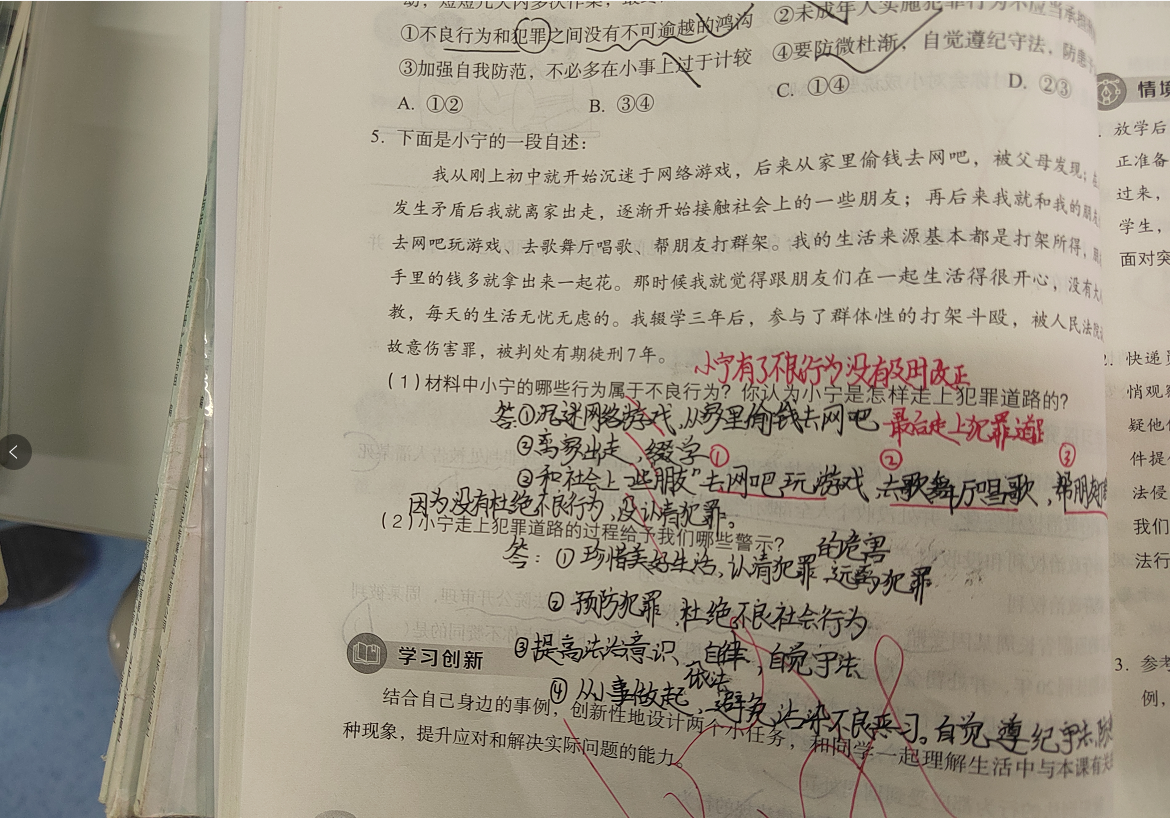 ①不良行为和犯罪之间没有不可逾越的鸿沟
②未成年人实施犯罪行为不应当承担
③加强自我防范，不必多在小事上过于计较
④要防微杜渐，自觉遵纪守法，防患于
A. ①② B. ③④ C. ①④ D. ②③
5. 下面是小宁的一段自述：
我从刚上初中就开始沉迷于网络游戏，后来从家里偷钱去网吧，被父母发现；在
发生矛盾后我就离家出走，逐渐开始接触社会上的一些朋友；再后来我就和我的朋友
去网吧玩游戏、去歌舞厅唱歌、帮朋友打群架。我的生活来源基本都是打架所得，
手里的钱多就拿出来一起花。那时候我就觉得跟朋友们在一起生活得很开心，没有大人
教，每天的生活无忧无虑的。我辍学三年后，参与了群体性的打架斗殴，被人民法院
故意伤害罪，被判处有期徒刑7年。
小宁有了不良行为没有及时改正
(1)材料中小宁的哪些行为属于不良行为？你认为小宁是怎样走上犯罪道路的？
答①沉迷网络游戏，从家里偷钱去网吧
最后走上犯罪道路
②离家出走，缀学
① ② ③
③和社会上"一些朋友"去网吧玩游戏，去歌舞厅唱歌，帮朋友打
因为没有杜绝不良行为，没认清犯罪。
(2)小宁走上犯罪道路的过程给予我们哪些警示？
答：①珍惜美好生活，认清犯罪的危害，远离犯罪
②预防犯罪，杜绝不良社会行为
③提高法治意识，自律，自觉守法
依法
④从小事做起，避免沾染不良恶习。自觉遵纪守法，
学习创新
结合自己身边的事例，创新性地设计两个小任务，和同学一起理解生活中与本课有关
种现象，提升应对和解决实际问题的能力。
情境
放学后
正准备
过来，
学生，
面对突
快递
悄观
疑他
件提
法侵
我们
法行
3. 参考
例，